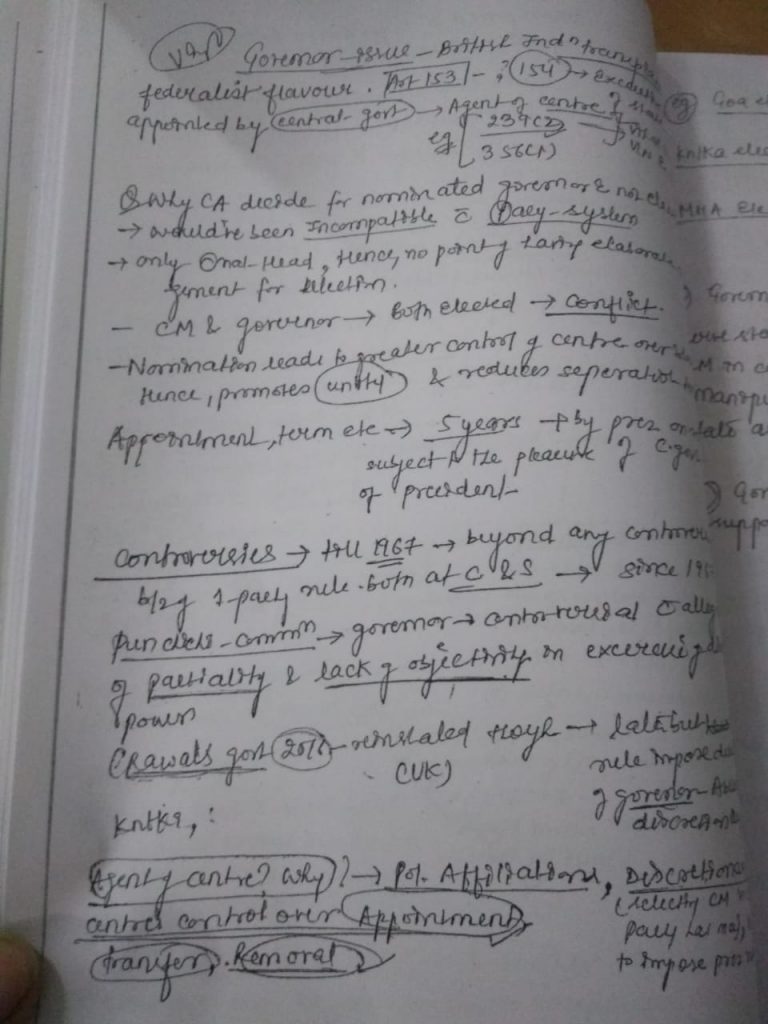 V.imp Governor issue - British Indn transplan
federalist flavour. Art 153 - , 154 → executive
appointed by central govt → Agent of centre
eg 239(2)
356(1)
Q Why CA decide for nominated governor & not elec
→ would've been Incompatible c̄ Parly-system
→ only Cnal-Head, Hence, no point of having elaborate
gement for election.
- CM & governor → both elected → conflict.
- Nomination leads to greater control of centre over
Hence, promotes unity & reduces seperatist
Appointment, term etc → 5 years → by prez on
subject to the pleasure of C.gov
of president
Controversies → till 1967 → beyond any controver
b/z of 1-party rule both at C & S → since 19
Punchhi-commn → governor → controversial c̄ alleg
of partiality & lack of objectivity in excercising
power
(Rawats govt 2016 - reinstated
(UK)
rule imposed
of governor
discretion
Kntka, :
Agent of centre? Why? → Pol. Affiliations, Discretiona
(selecty CM
centres control over Appointment,
party has maj,
transfer, Removal
to impose pres
eg Goa el
Kntka elec
MHA ele
Govern
M in c
manipu
Gov
suppo